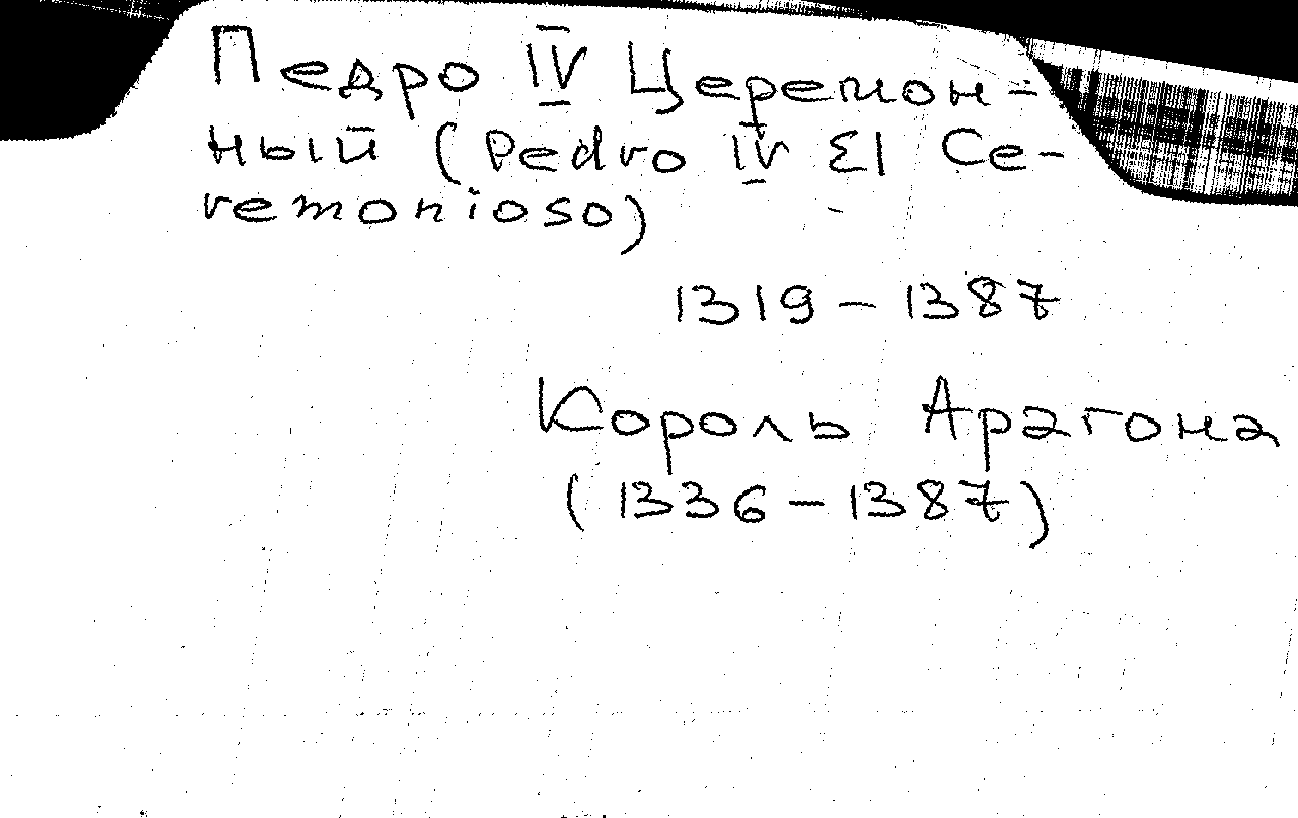 Педро IV Церемон-
ный (Pedro IV El Ce-
remonioso)
1319 – 1387
Король Арагона
(1336 – 1387)